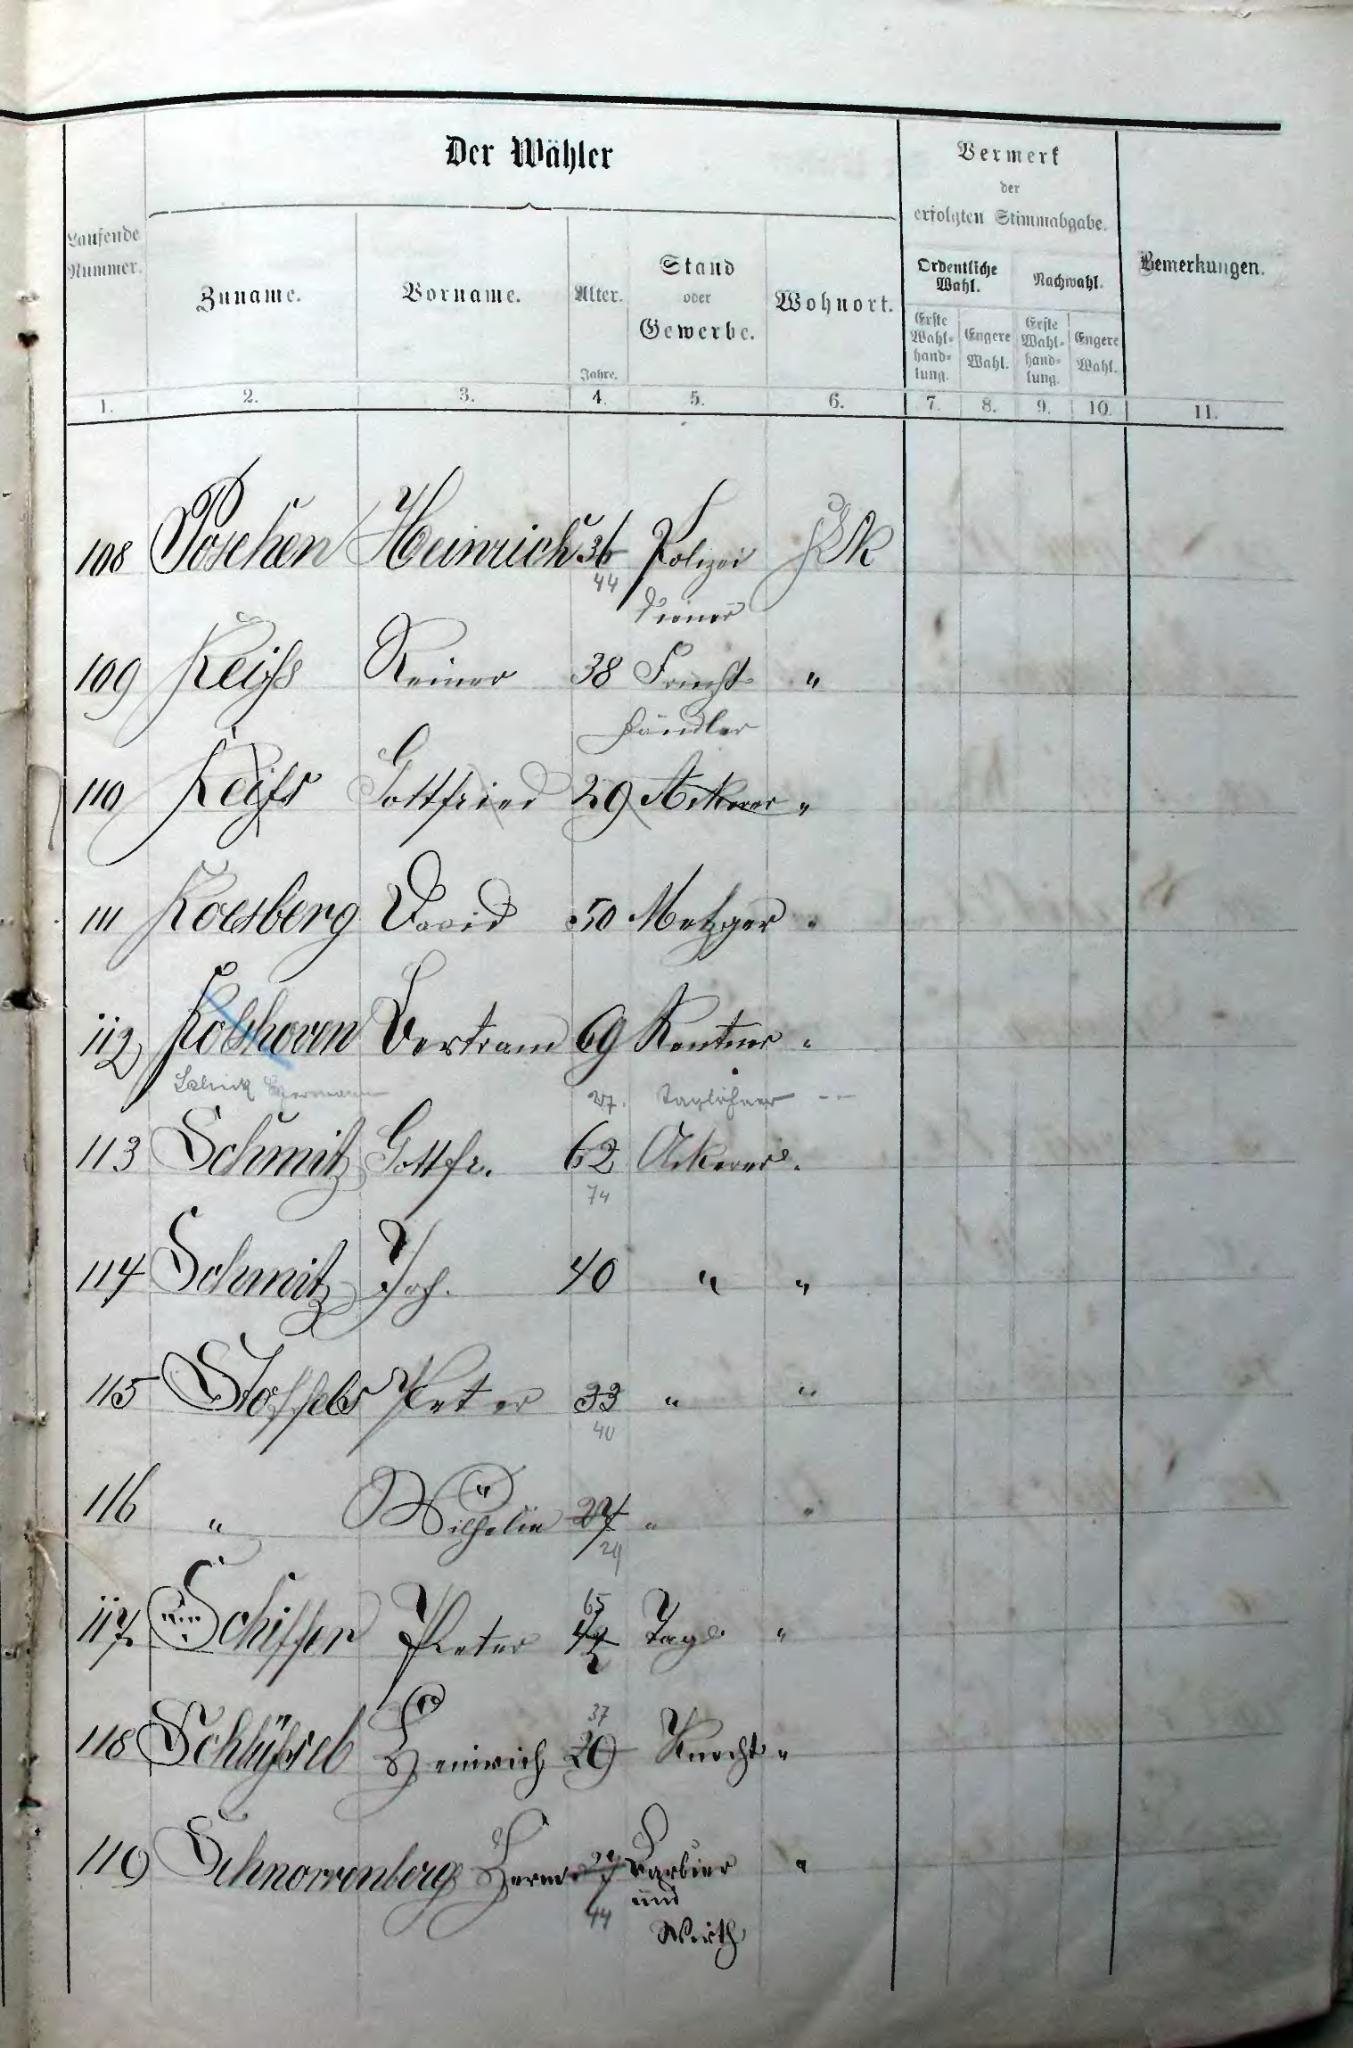 Der Wähler
Vermerk
der
erfolgten Stimmabgabe.
Laufende
Nummer.
Zuname.
Vorname.
Alter.
Jahre.
Stand
oder
Gewerbe.
Wohnort.
Ordentliche
Wahl.
Nachwahl.
Erste
Wahl-
hand-
lung.
Engere
Wahl.
Erste
Wahl-
hand-
lung.
Engere
Wahl.
Bemerkungen.
1. 2. 3. 4. 5. 6. 7. 8. 9. 10. 11.
108 Poschen Heinrich 36 Polizei
44 diener
109 Reifs Reiner 38 Frucht "
händler
110 Reifs Gottfried 29 Ackerer "
111 Roesberg David 50 Metzger "
112 Rolshoven Bertram 69 Rentner "
Hermann 27. Taglöhner
113 Schmitz Gottfr. 62 Ackerer "
74
114 Schmitz Joh. 40 " "
115 Stoffels Peter 33 " "
40
116 " Wilhelm 27 " "
29
65
117 Schiffer Peter Tag "
37
118 Schlüssel Heinrich 29 Knecht "
119 Schnorrenberg Herm. Barbier "
und
44 Wirth